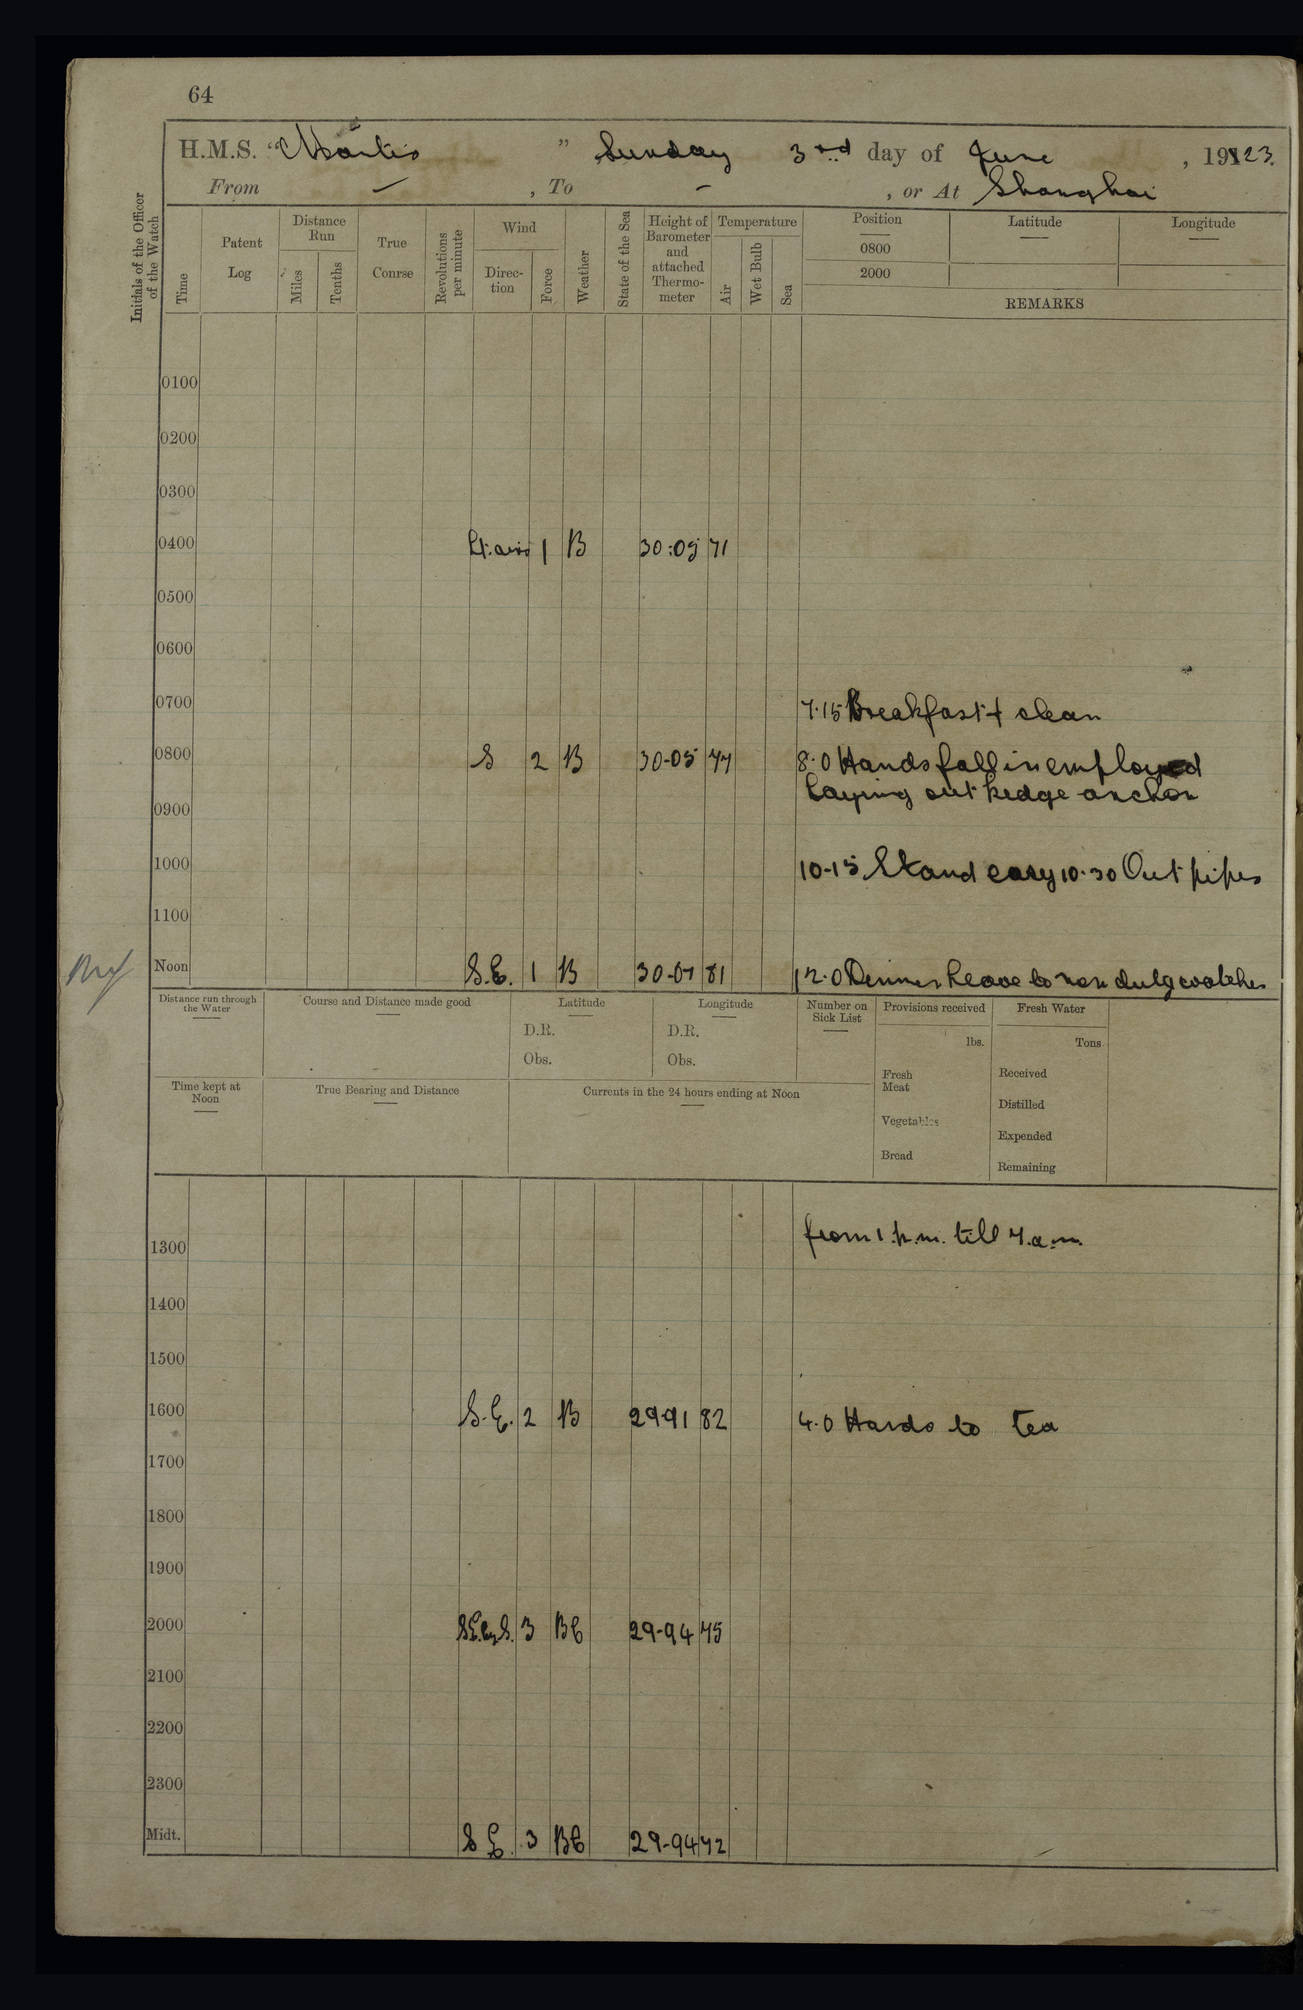 64
H.M.S. " " Sunday 3rd day of June , 1923.
From — , To — , or At Shanghai
Initials of the Officer of the Watch
Time
Patent Log
Distance Run
Miles
Tenths
True Course
Revolutions per minute
Wind
Direction
Force
Weather
State of the Sea
Height of Barometer and attached Thermometer
Temperature
Air
Wet Bulb
Sea
Position
0800
2000
Latitude
Longitude
REMARKS
0100
0200
0300
0400 Lt. airs 1 B 30:05 71
0500
0600
0700 7.15 Breakfast + clean
0800 S 2 B 30-05 77 8.0 Hands fall in employed
laying out kedge anchor
0900
1000 10-15 Stand easy 10.30 Out pipes
1100
Noon S.E. 1 B 30-01 81 12.0 Dinner Leave to non duty watches
Distance run through the Water
Course and Distance made good
Latitude
D.R.
Obs.
Longitude
D.R.
Obs.
Number on Sick List
Provisions received
lbs.
Fresh Meat
Vegetables
Bread
Fresh Water
Tons
Received
Distilled
Expended
Remaining
Time kept at Noon
True Bearing and Distance
Currents in the 24 hours ending at Noon
from 1.p.m. till 7.a.m.
1300
1400
1500
1600 S.E. 2 B 29-91 82 4.0 Hands to Tea
1700
1800
1900
2000 S.E. by S. 3 BC 29-94 75
2100
2200
2300
Midt. S E. 3 BC 29-94 72